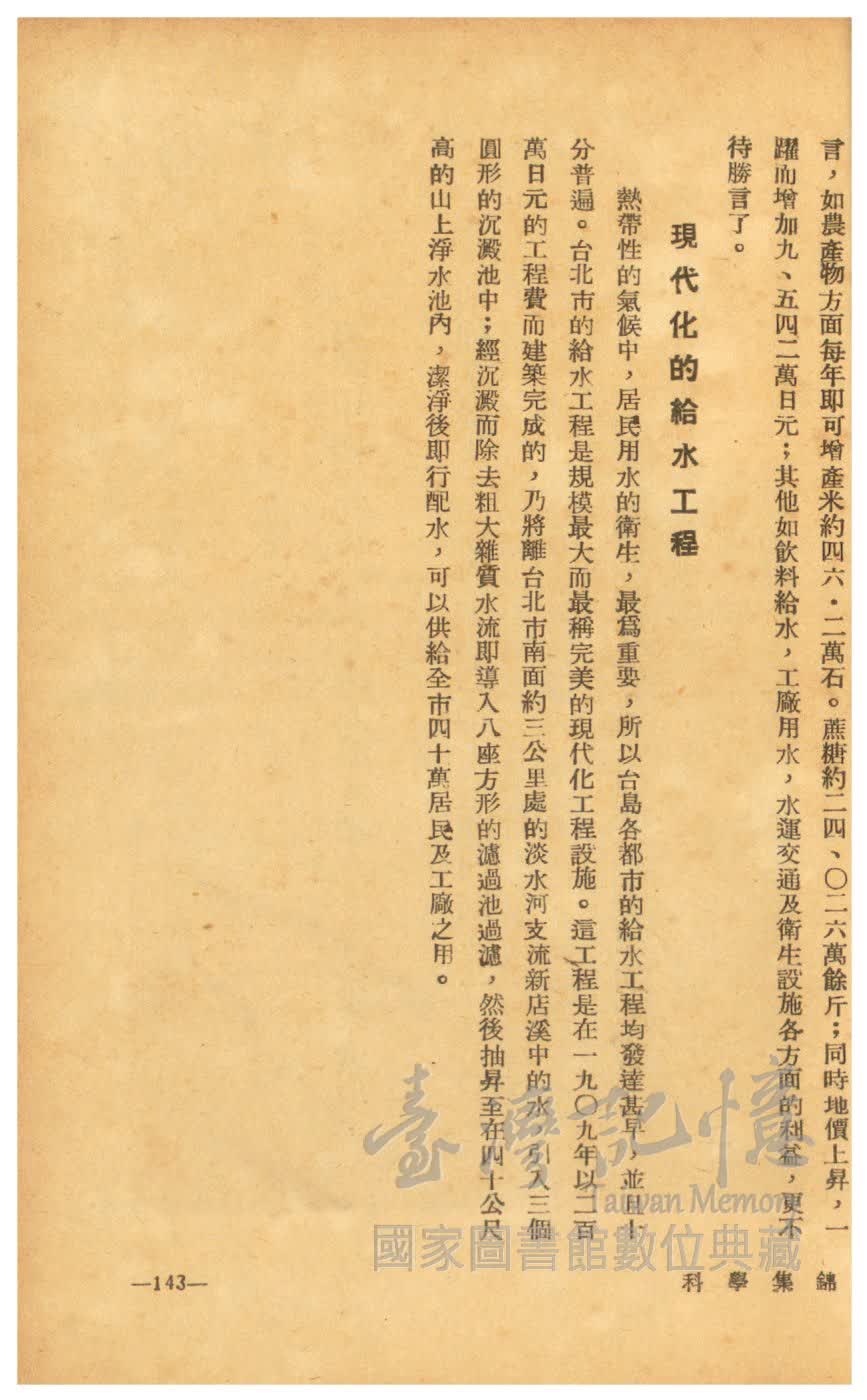 言，如農產物方面每年即可增產米約四六．二萬石。蔗糖約二四、〇二六萬餘斤；同時地價上昇，一
躍而增加九、五四二萬日元；其他如飲料給水，工廠用水，水運交通及衛生設施各方面的利益，更不
待勝言了。
現代化的給水工程
熱帶性的氣候中，居民用水的衛生，最爲重要，所以台島各都市的給水工程均發達甚早，並且十
分普遍。台北市的給水工程是規模最大而最稱完美的現代化工程設施。這工程是在一九〇九年以二百
萬日元的工程費而建築完成的，乃將離台北市南面約三公里處的淡水河支流新店溪中的水，引入三個
圓形的沉澱池中；經沉澱而除去粗大雜質水流即導入八座方形的濾過池過濾，然後抽昇至在四十公尺
高的山上淨水池內，潔淨後即行配水，可以供給全市四十萬居民及工廠之用。
臺灣記憶
Taiwan Memory
國家圖書館數位典藏
科學集錦
—143—